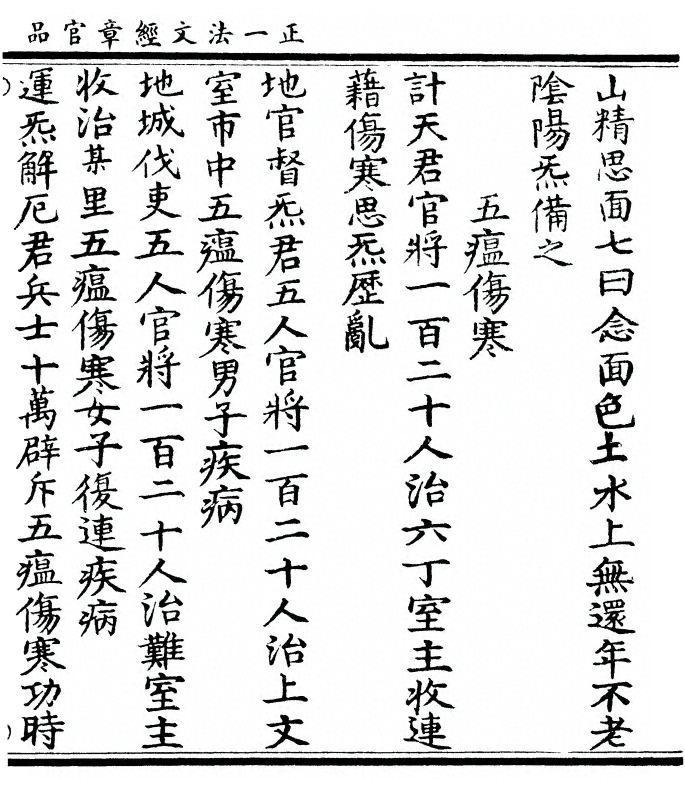 正一法文經章官品
山精思面七曰念面色土水上無還年不老
陰陽炁備之
五瘟傷寒
計天君官將一百二十人治六丁室主收連
藉傷寒思炁歷亂
地官督炁君五人官將一百二十人治上文
室市中五瘟傷寒男子疾病
地城伐吏五人官將一百二十人治難室主
收治某里五瘟傷寒女子復連疾病
運炁解厄君兵士十萬辟斥五瘟傷寒功時